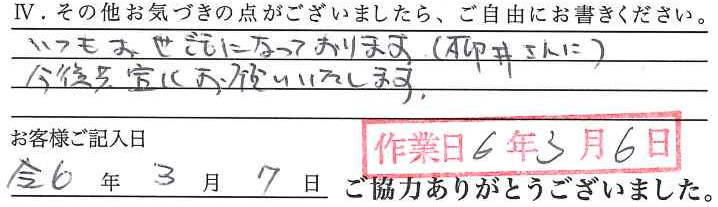 Ⅳ．その他お気づきの点がございましたら、ご自由にお書きください。
いつもお世話になっております。(柳井さんに)
今後共宜しくお願いいたします。
お客様ご記入日
作業日6年3月6日
令6年3月7日
ご協力ありがとうございました。